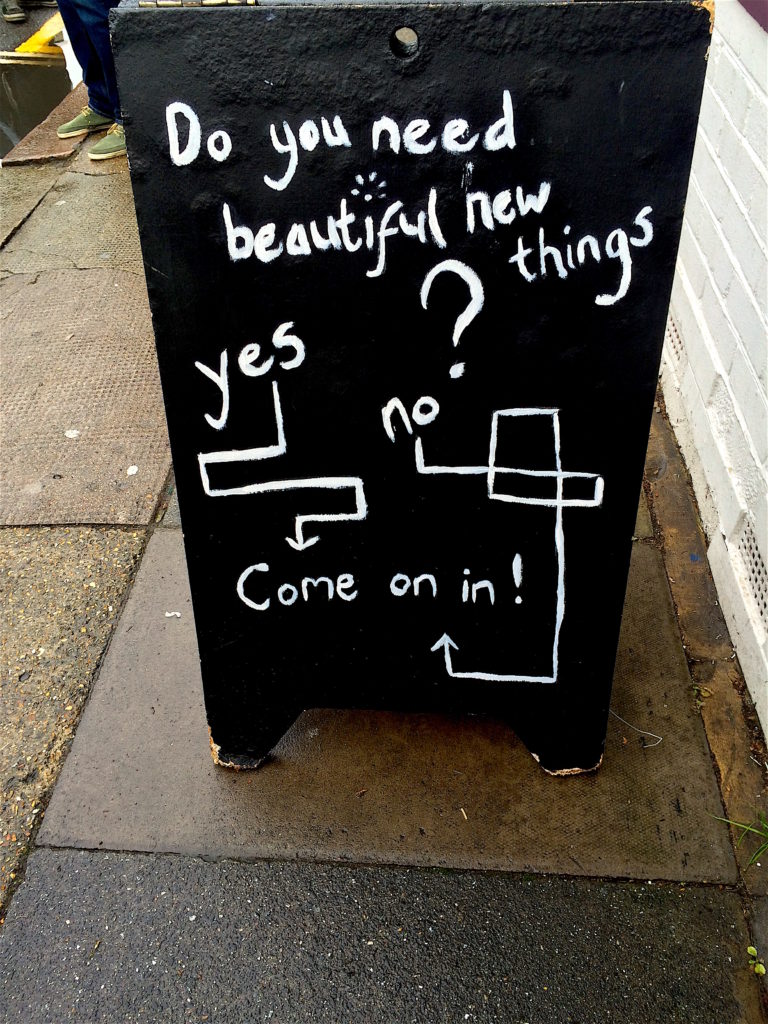 Do you need
beautiful new
things
?
yes
no
Come on in!